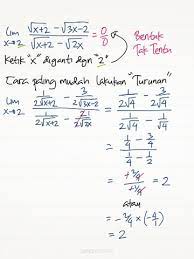 lim x→2 (√x+2 − √3x−2)/(√x+2 − √2x) = 0/0
Bentuk Tak Tentu
Ketik "x" diganti dgn "2"
Cara paling mudah lakukan "Turunan"
lim x→2 (1/(2√x+2) − 3/(2√3x−2))/(1/(2√x+2) − 2·1/(2√2x)) = (1/(2√4) − 3/(2√4))/(1/(2√4) − 1/√4)
= (1/4 − 3/4)/(1/4 − 1/2)
= 2
atau
= −2/4 × (−4/1)
= 2